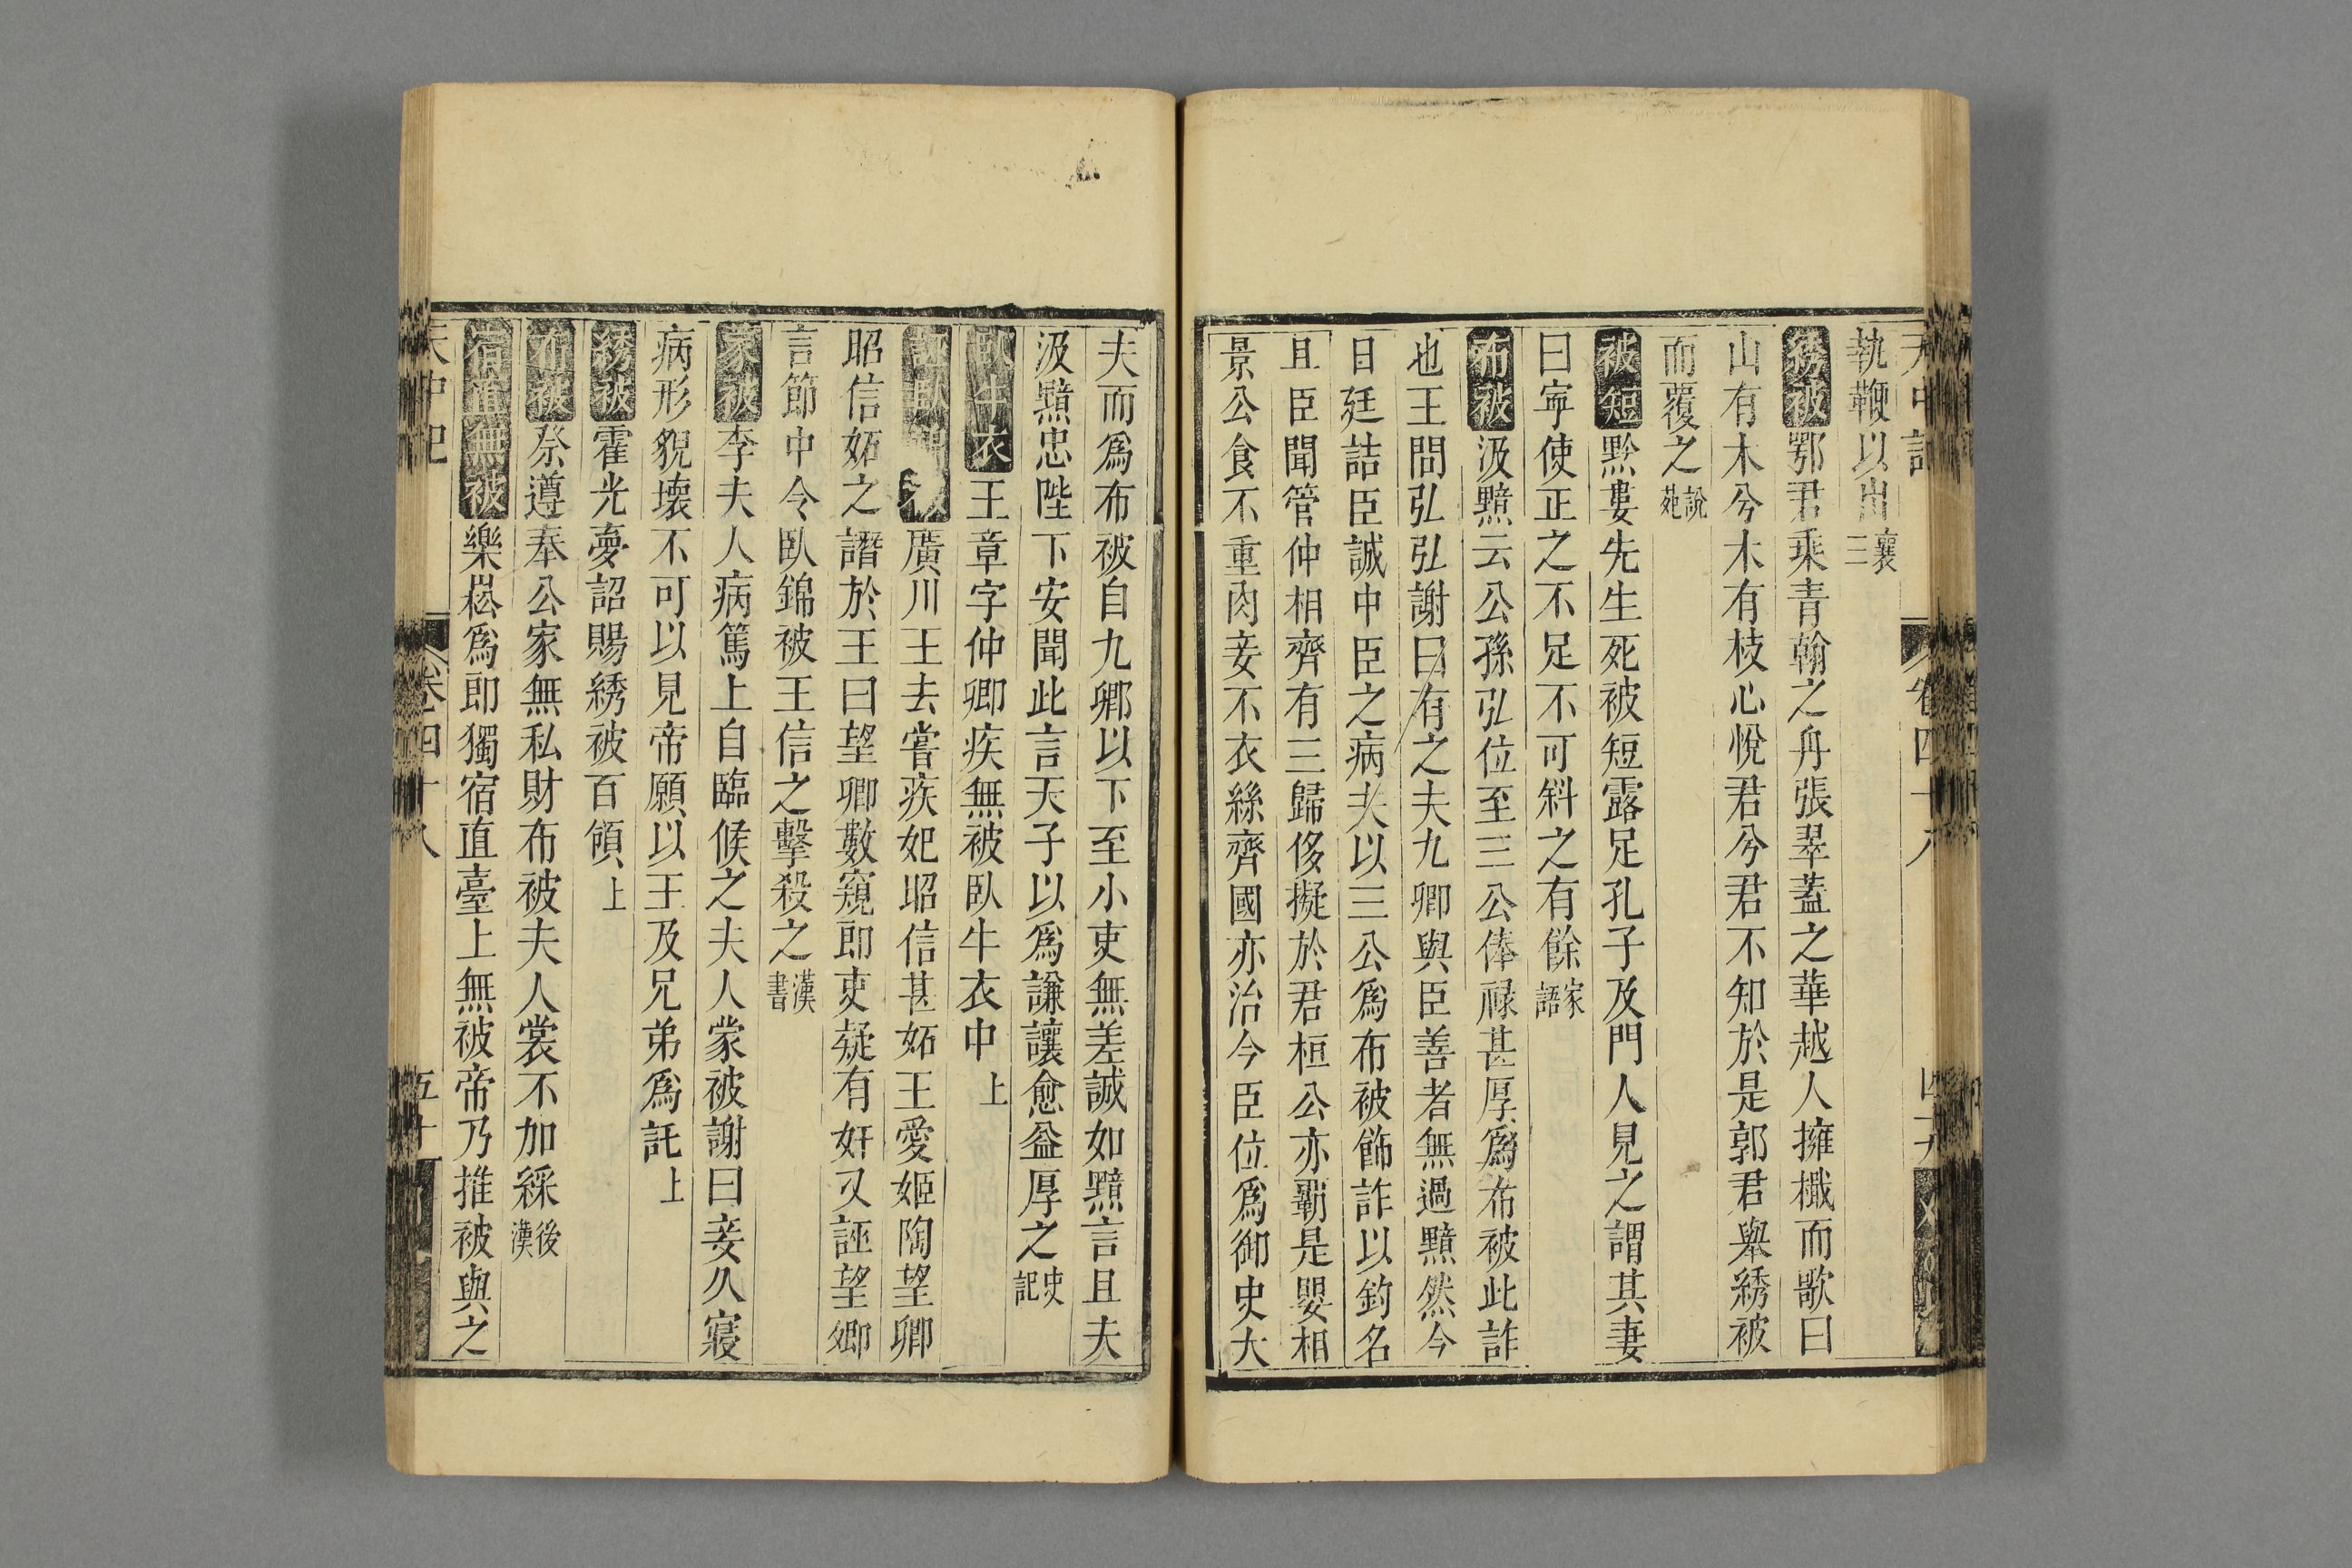 天中記 卷四十八 四十九
執鞭以出襄三
綉被鄂君乘青翰之舟張翠蓋之華越人擁檝而歌曰
山有木兮木有枝心悅君兮君不知於是郭君舉綉被
而覆之說苑
被短黔婁先生死被短露足孔子及門人見之謂其妻
曰寧使正之不足不可斜之有餘家語
布被汲黯云公孫弘位至三公俸祿甚厚爲布被此詐
也王問弘弘謝曰有之夫九卿與臣善者無過黯然今
日廷詰臣誠中臣之病夫以三公爲布被飾詐以釣名
且臣聞管仲相齊有三歸侈擬於君桓公亦霸是嬰相
景公食不重肉妾不衣絲齊國亦治今臣位爲御史大
夫而爲布被自九卿以下至小吏無差誠如黯言且夫
汲黯忠陛下安聞此言天子以爲謙讓愈益厚之史記
臥牛衣王章字仲卿疾無被臥牛衣中上
誣臥錦被廣川王去嘗疾妃昭信甚妬王愛姬陶望卿
昭信妬之譖於王曰望卿數窺郎吏疑有奸又誣望卿
言節中令臥錦被王信之擊殺之漢書
蒙被李夫人病篤上自臨候之夫人蒙被謝曰妾久寢
病形貌壞不可以見帝願以王及兄弟爲託上
綉被霍光薨詔賜綉被百領上
布被祭遵奉公家無私財布被夫人裳不加綵後漢
宿直無被樂崧爲郎獨宿直臺上無被帝乃推被與之
天中記 卷四十八 五十